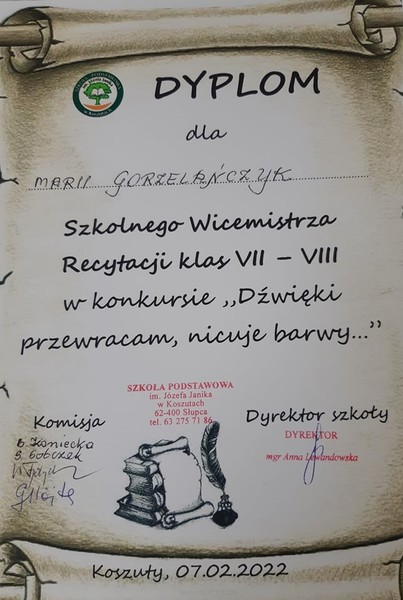 DYPLOM
dla
MARII GORZELAŃCZYK
Szkolnego Wicemistrza
Recytacji klas VII – VIII
w konkursie ,,Dźwięki
przewracam, nicuje barwy...”
SZKOŁA PODSTAWOWA
im. Józefa Janika
w Koszutach
62-400 Słupca
tel. 63 275 71 86
Komisja
Dyrektor szkoły
B. Koniecka
B. Sobczek
DYREKTOR
mgr Anna Lewandowska
Koszuty, 07.02.2022